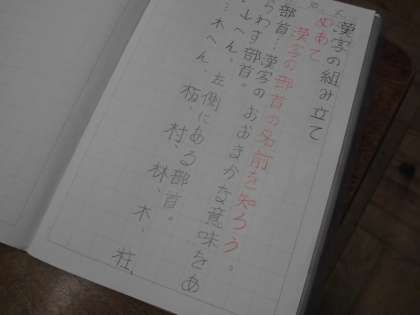 漢字の組み立て
めあて
漢字の部首の名前を知ろう。
部首…漢字のおおまかな意味をあ
らわす部首。
・へん 左側にある部首。
…木へん 村、林、木、柱、